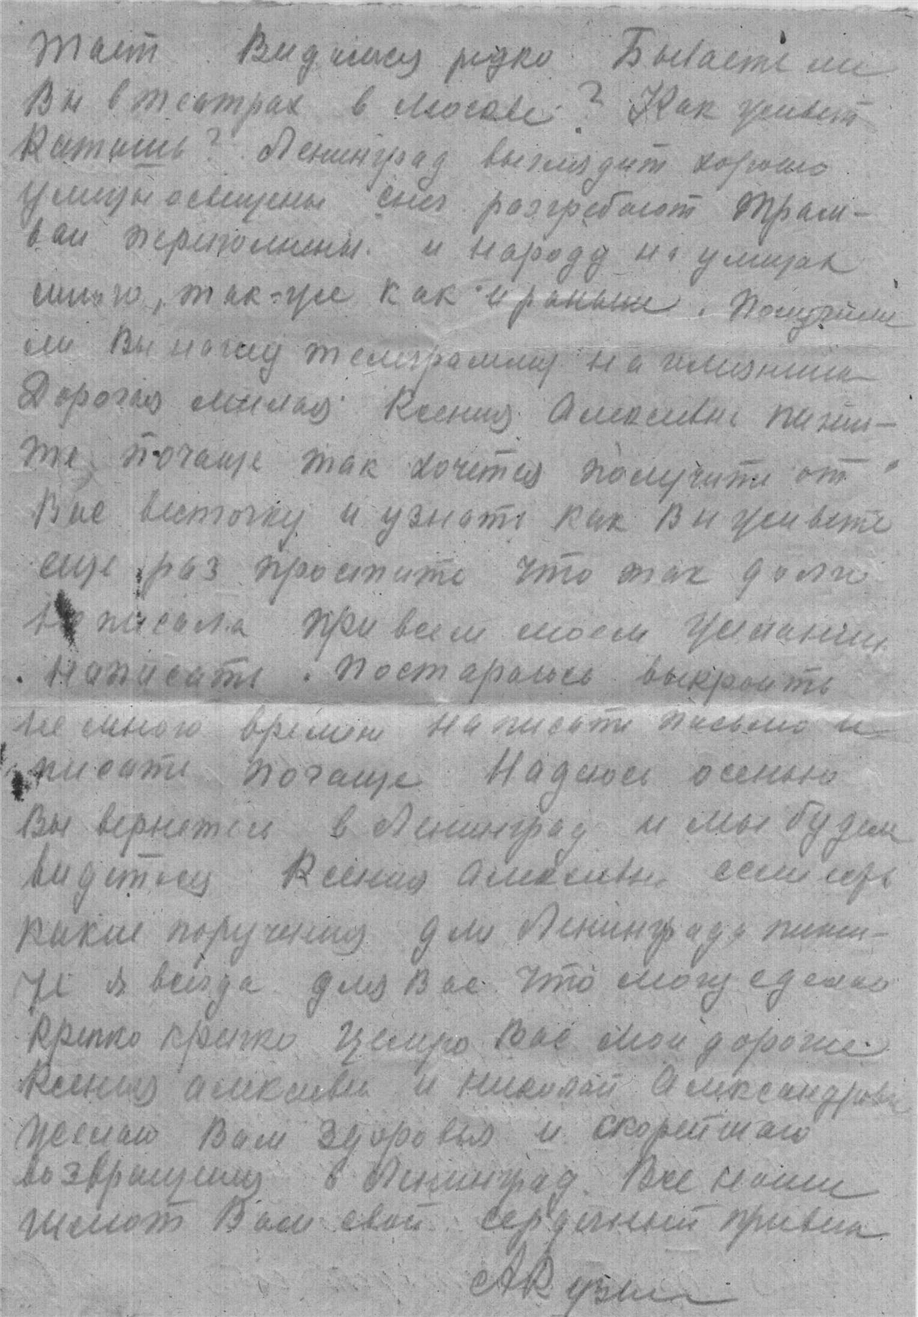 тает Видимся редко Бываете ли
Вы в театрах в Москве? Как живет
Катошь? Ленинград выглядит хорошо
улицы освещены снег разгребают трам-
ваи переполнены и народу на улицах
много, так-же как и раньше. Получили
ли Вы нашу телеграмму на имянины
Дорогая милая Ксения Алексевна пиши-
те почаще так хочется получить от
Вас весточку и узнать как Вы живете
еще раз простите что так долго
не писала при всем моем желании
написать. Постараюсь выкроить
немного время написать письмо и
писать почаще Надеюсь осенью
Вы вернетесь в Ленинград и мы будем
видеться Ксения Алексевна если есть
какие поручения для Ленинграда пиши-
те я всегда для Вас что могу сделаю
Крепко крепко целую Вас мои дорогие
Ксения Алексевна и Николай Александрович
желаю Вам здоровья и скорейшаго
возвращения в Ленинград. Все наши
шлют Вам свой сердечный привет